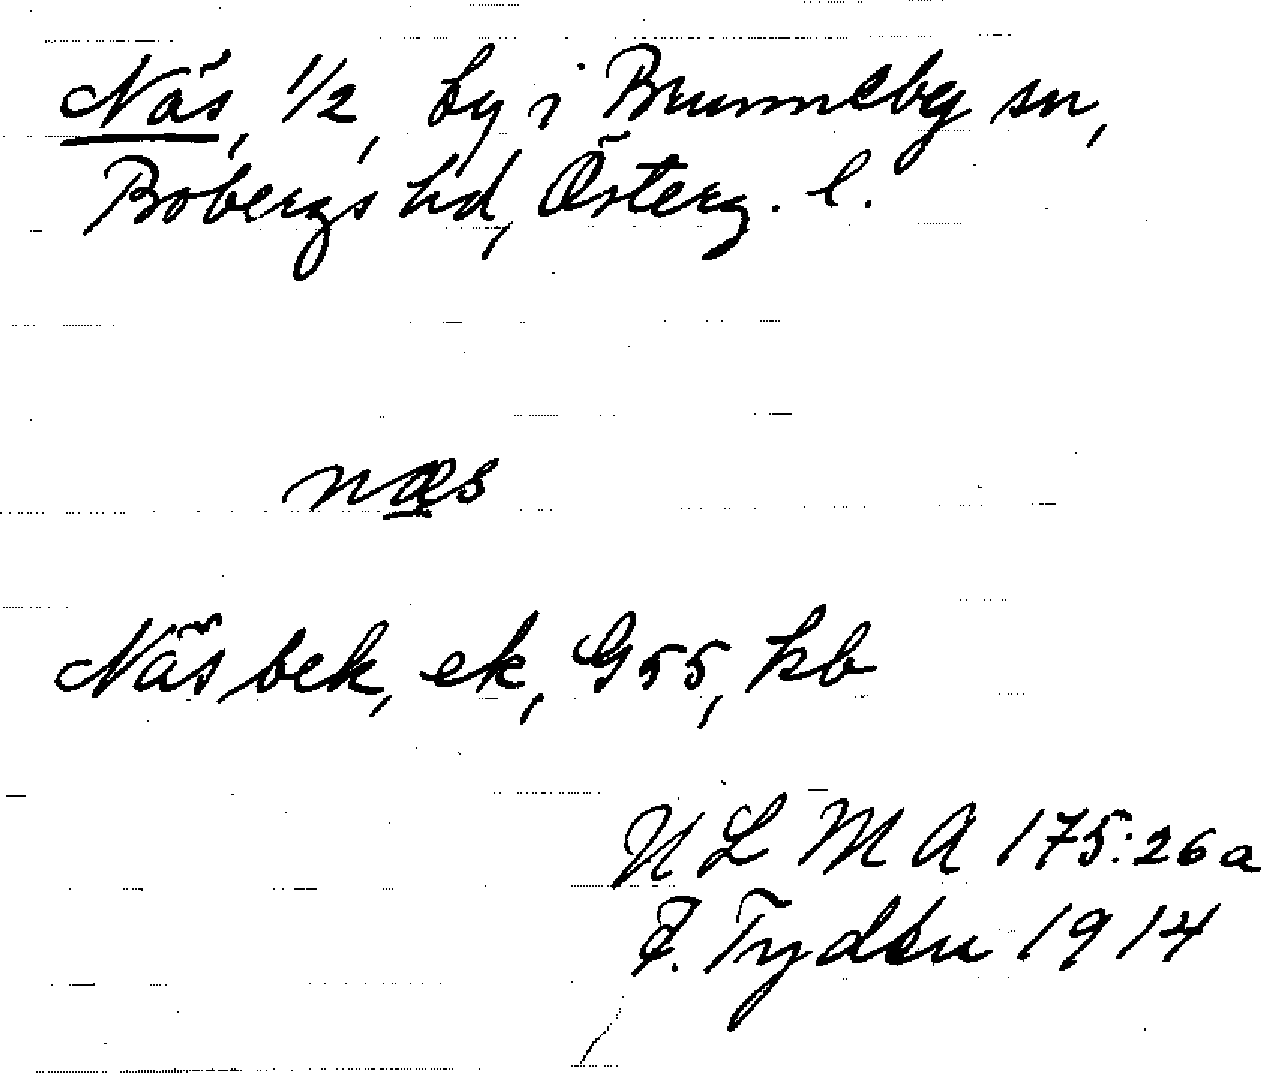 Näs, 1/2, by i Brunneby sn,
Bobergs hd, Österg. l.
næs
Näs bek, ek, G55, kb
ULMA 175:26a
F. Tydén 1914